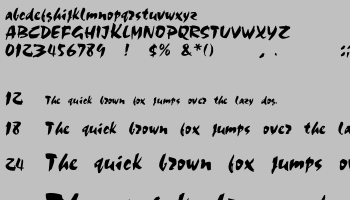 abcdefghijklmnopqrstuvwxyz
ABCDEFGHIJKLMNOPQRSTUVWXYZ
0123456789 ! $% &*() , . ;:
12 The quick brown fox jumps over the lazy dog.
18 The quick brown fox jumps over the la
24 The quick brown fox jumps ov